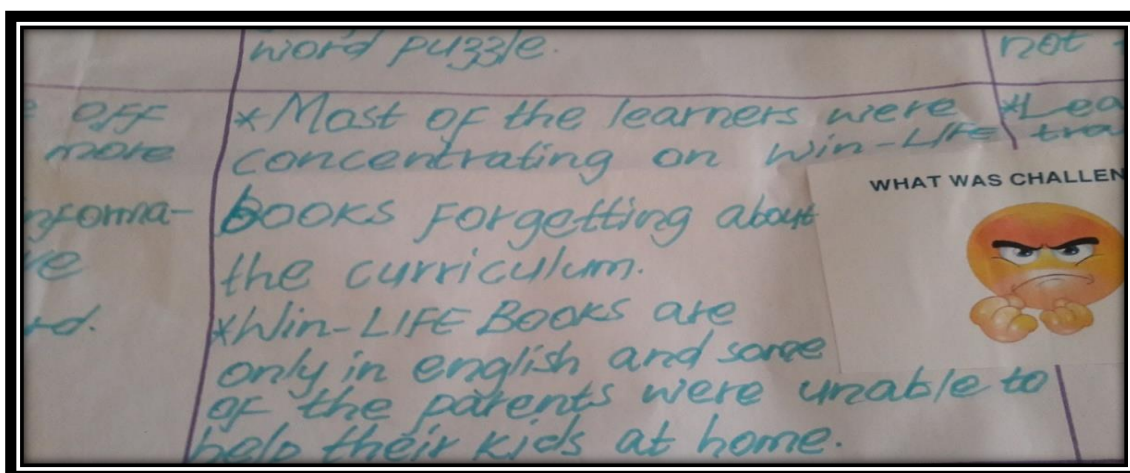 word puzzle.
not
OFF
more
nforma-
ve
rd.
*Most of the learners were
concentrating on Win-LIFE
BOOKS Forgetting about
the curriculum.
*Win-LIFE BOOKS are
only in english and some
of the parents were unable to
help their kids at home.
*Lea
tra
WHAT WAS CHALLEN